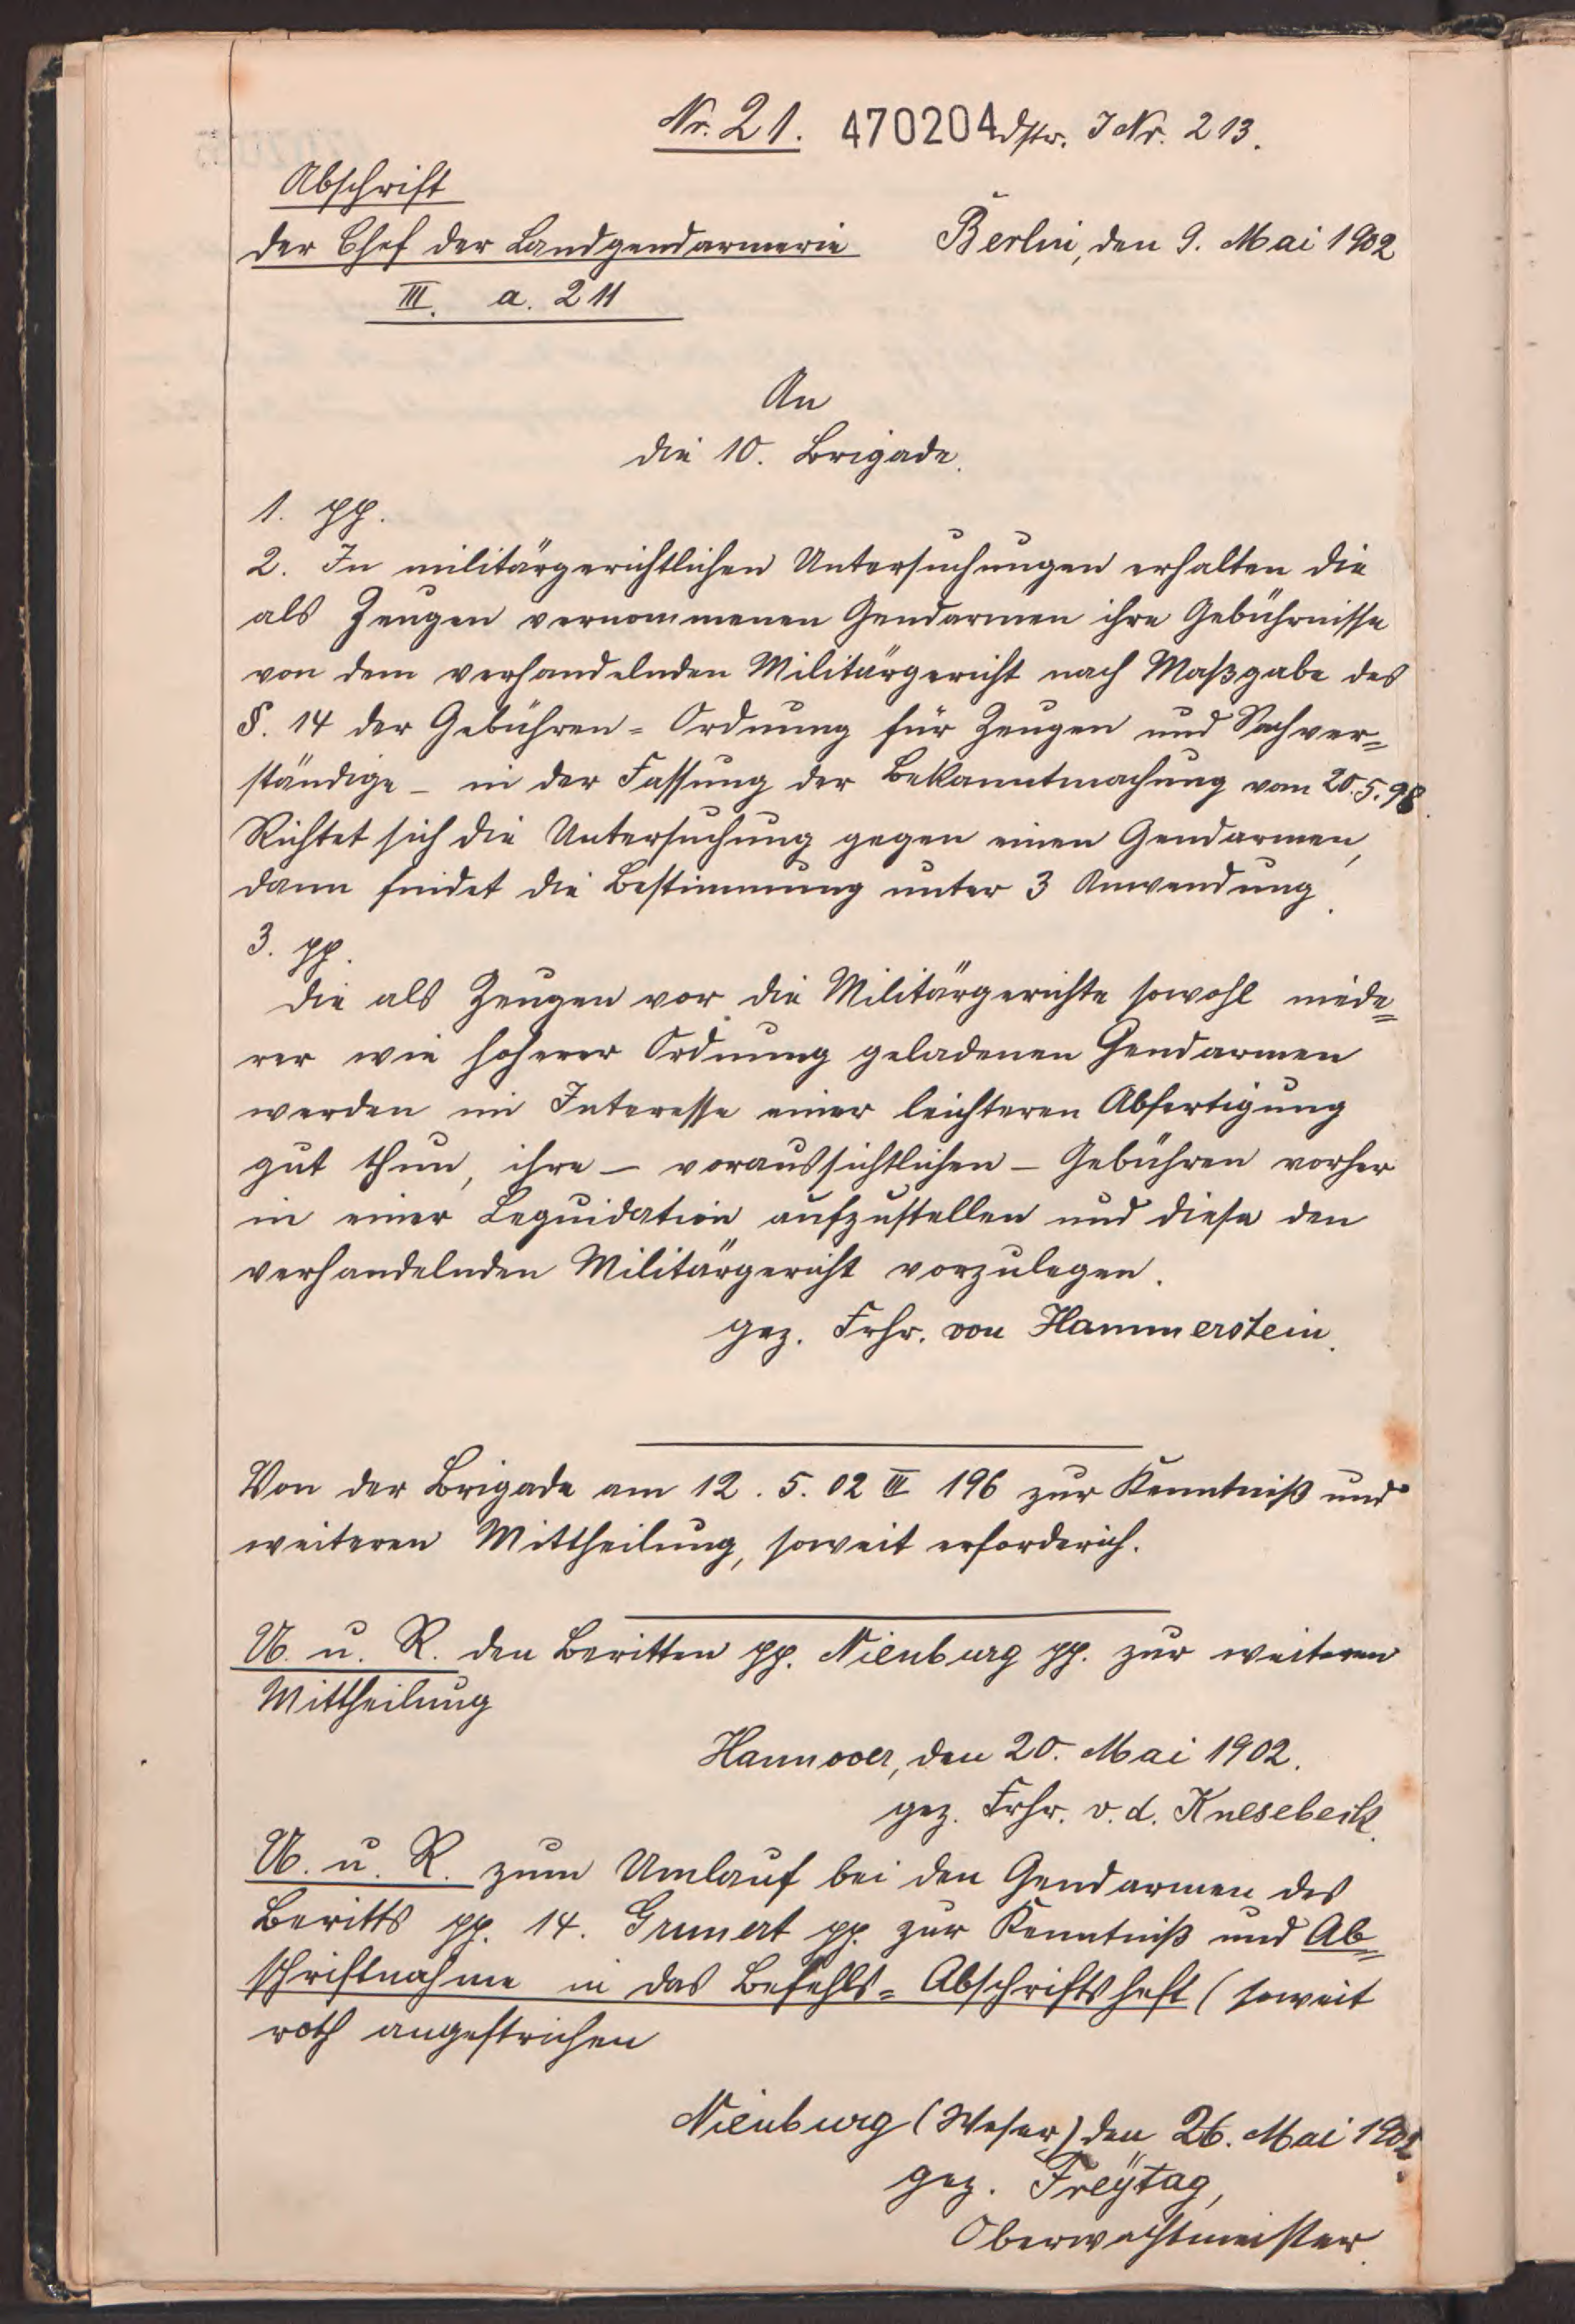 Nr. 21. 470204 dstr. J Nr. 213.
Abschrift
Der Chef der Landgendarmerie Berlin, den 9. Mai 1902
III. a. 211
An
die 10. Brigade.
1. pp.
2. In militärgerichtlichen Untersuchungen erhalten die
als Zeugen vernommenen Gendarmen ihre Gebührnisse
von dem verhandelnden Militärgericht nach Maßgabe des
§. 14 der Gebühren= Ordnung für Zeugen und Sachver=
ständige – in der Fassung der Bekanntmachung vom 20.5.98.
Richtet sich die Untersuchung gegen einen Gendarmen,
dann findet die Bestimmung unter 3 Anwendung.
3. pp.
Die als Zeugen vor die Militärgerichte sowohl niede=
rer wie hoherer Ordnung geladenen Gendarmen
werden im Interesse einer leichteren Abfertigung
gut thun, ihre – voraussichtlichen – Gebühren vorher
in einer Lequidation aufzustellen und diese den
verhandelnden Militärgericht vorzulegen.
gez. Frhr. von Hammerstein.
Von der Brigade am 12. 5. 02 III 196 zur Kenntniß und
weiteren Mittheilung, soweit erforderich.
U. u. R. den Beritten pp. Nienburg pp. zur weiteren
Mittheilung
Hannover, den 20. Mai 1902.
gez. Frhr. v. d. Knesebeck.
U. u. R. zum Umlauf bei den Gendarmen des
Beritts pp. 14. Grunert pp. zur Kenntniß und Ab=
schriftnahme in das Befehls= Abschriftsheft (soweit
roth angestrichen
Nienburg (Weser) den 26. Mai 1902
gez. Freÿtag,
Oberwachtmeister.